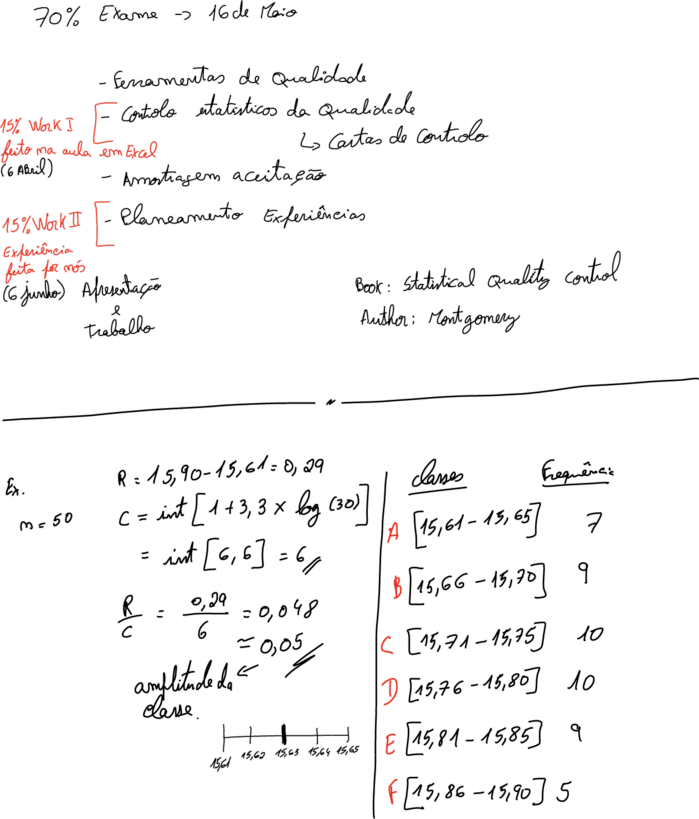 70% Exame -> 16 de Maio
- Ferramentas de Qualidade
- Controlo estatisticos da Qualidade
↳ Cartas de Controlo
15% Work I
feito na aula em Excel
(6 Abril)
- Amostragem aceitação
15% Work II
- Planeamento Experiências
Experiência
feita por nós
(6 junho) Apresentação
e
trabalho
Book: Statistical Quality control
Author: Montgomery
Ex.
n = 50
R = 15,90 - 15,61 = 0,29
C = int [1 + 3,3 × log (30)]
= int [6,6] = 6
R/C = 0,29/6 = 0,048
≈ 0,05
amplitude da
classe.
15,61 15,62 15,63 15,64 15,65
classes Frequência
A [15,61 - 15,65] 7
B [15,66 - 15,70] 9
C [15,71 - 15,75] 10
D [15,76 - 15,80] 10
E [15,81 - 15,85] 9
F [15,86 - 15,90] 5